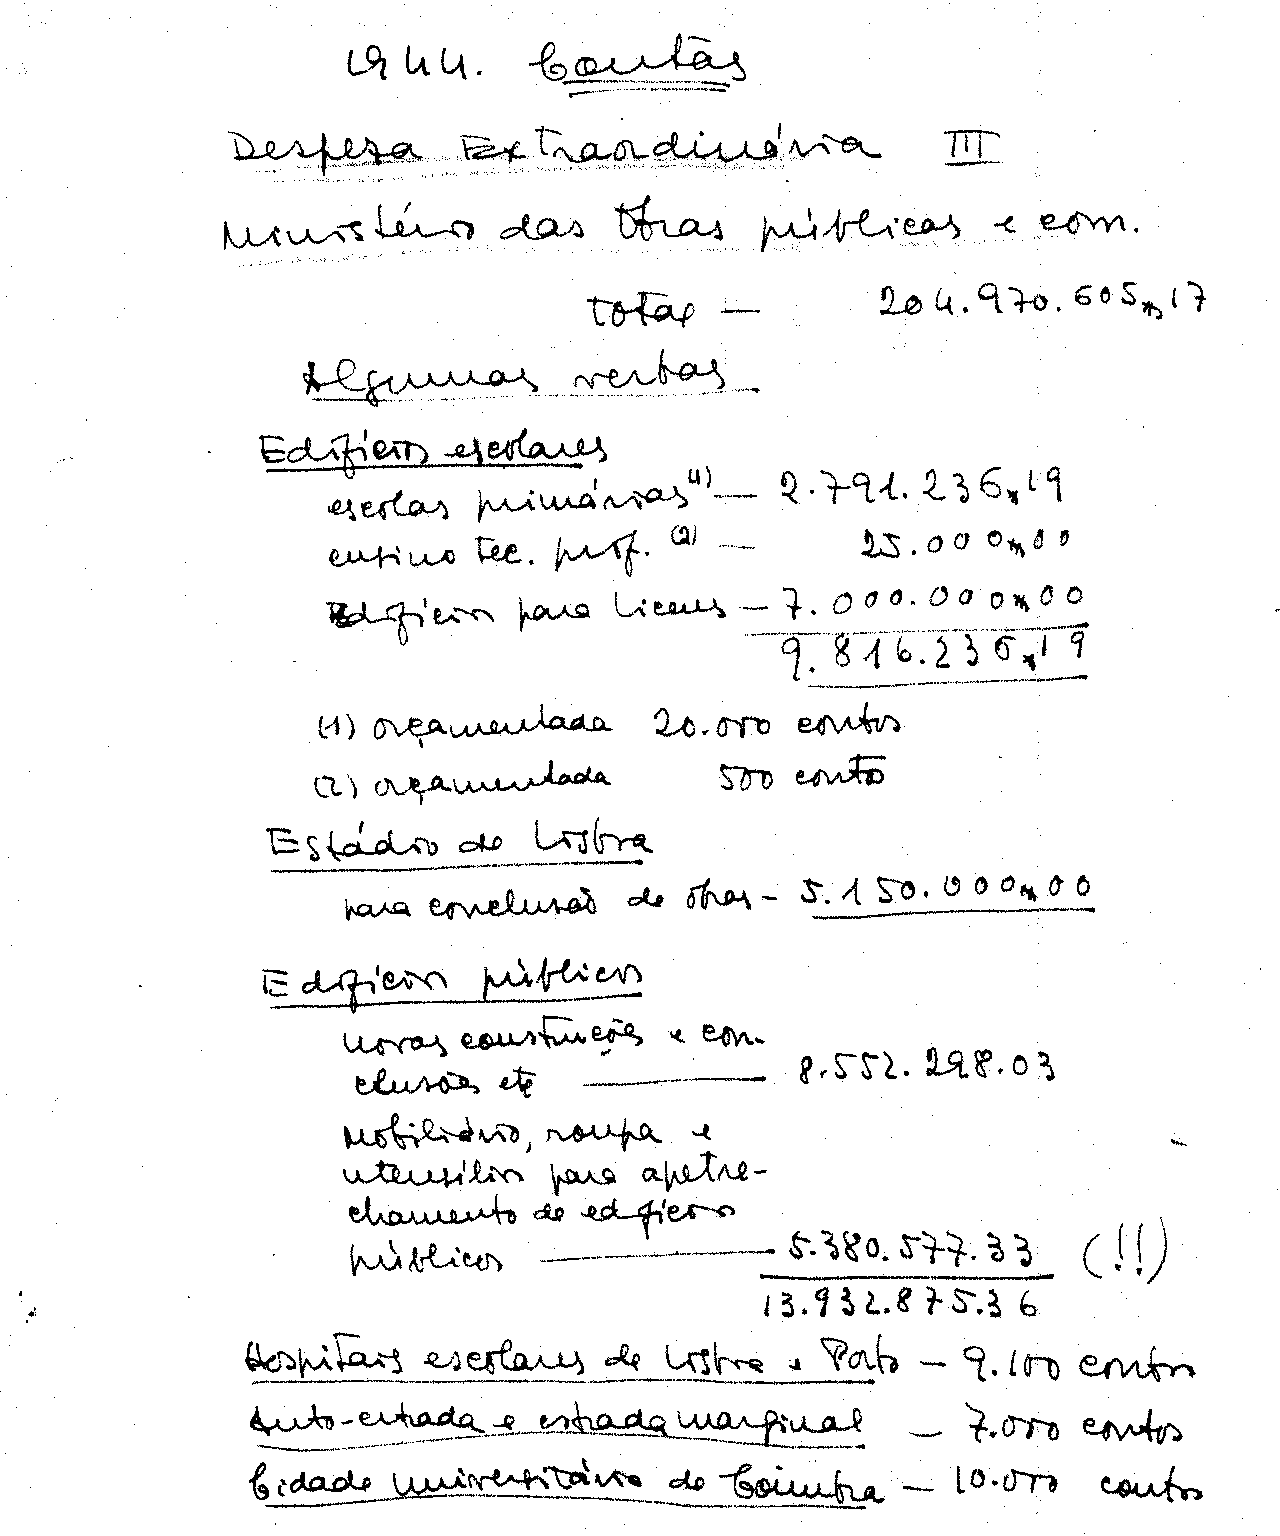 1944. Contas
Despesa Extraordinária III
Ministério das Obras públicas e com.
total — 204.970.605$17
Algumas verbas
Edifícios escolares
escolas primárias (1) — 2.791.236$19
ensino tec. prof. (2) — 25.000$00
Edifícios para liceus — 7.000.000$00
9.816.236$19
(1) orçamentada 20.000 contos
(2) orçamentada 500 contos
Estádio de Lisboa
para conclusão de obras — 5.150.000$00
Edifícios públicos
novas construções e con-
clusões etc — 8.552.298.03
Mobiliário, roupa e
utensílios para apetre-
chamento de edifícios
públicos — 5.380.577.33 (!!)
13.932.875.36
Hospitais escolares de Lisboa e Porto — 9.100 contos
Auto-estrada e estrada marginal — 7.000 contos
Cidade Universitária de Coimbra — 10.000 contos